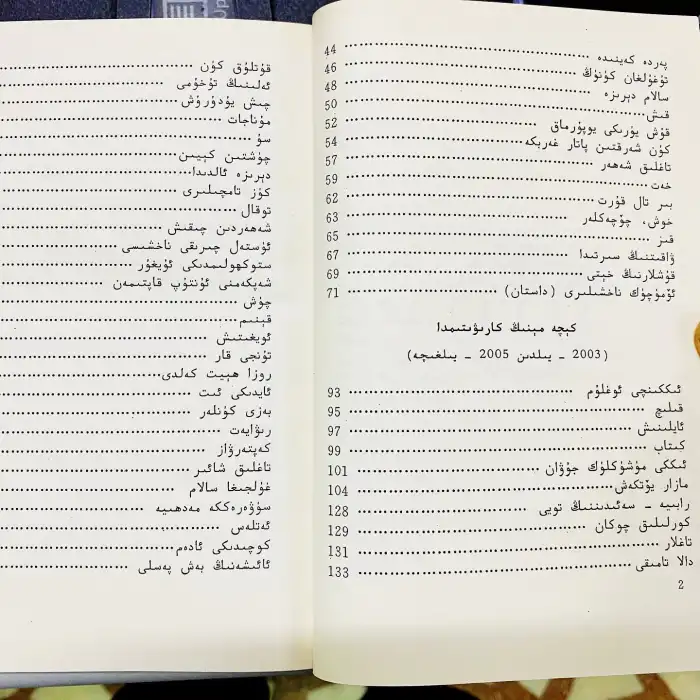 پەردە كەينىدە ........ 44
تۇغۇلغان كۈنۈڭ ........ 46
سالام دېرىزە ........ 48
قىش ........ 50
قۇش يۈرىكى يوپۇرماق ........ 52
كۈن شەرقتىن پاتار غەربكە ........ 54
تاغلىق شەھەر ........ 57
خەت ........ 59
بىر تال قۇرت ........ 62
خوش، چۆچەكلەر ........ 63
قىز ........ 65
ۋاقىتنىڭ سىرتىدا ........ 67
قۇشلارنىڭ خېتى ........ 69
ئۆمۈچۈك ناخشىلىرى (داستان) ........ 71
كېچە مېنىڭ كارىۋىتىمدا
(2003 - يىلدىن 2005 - يىلغىچە)
ئىككىنچى ئوغلۇم ........ 93
قىلىچ ........ 95
ئايلىنىش ........ 97
كىتاب ........ 99
ئىككى مۈشۈكلۈك جۇۋان ........ 101
مازار يۆتكەش ........ 104
رابىيە - سەئىدىننىڭ تويى ........ 128
كورلىلىق چوكان ........ 129
تاغلار ........ 131
دالا تامىقى ........ 133
2
قۇتلۇق كۈن ........
ئەلىنىڭ تۇخۇمى ........
چىش يۇدۇرۇش ........
مۇناجات ........
سۇ ........
چۈشتىن كېيىن ........
دېرىزە ئالدىدا ........
كۈز تامچىلىرى ........
توقال ........
شەھەردىن چىقىش ........
ئۈستەل چىرىقى ناخشىسى ........
ستوكھولىمدىكى ئۇيغۇر ........
شەپكەمنى ئۇنتۇپ قاپتىمەن ........
چۈش ........
قېنىم ........
ئويغىتىش ........
تۇنجى قار ........
روزا ھېيت كەلدى ........
ئايدىكى ئىت ........
بەزى كۈنلەر ........
رىۋايەت ........
كەپتەرۋاز ........
تاغلىق شائىر ........
غۇلجىغا سالام ........
سۈۋەرەككە مەدھىيە ........
ئەتلەس ........
كوچىدىكى ئادەم ........
ئائىشەنىڭ بەش پەسلى ........